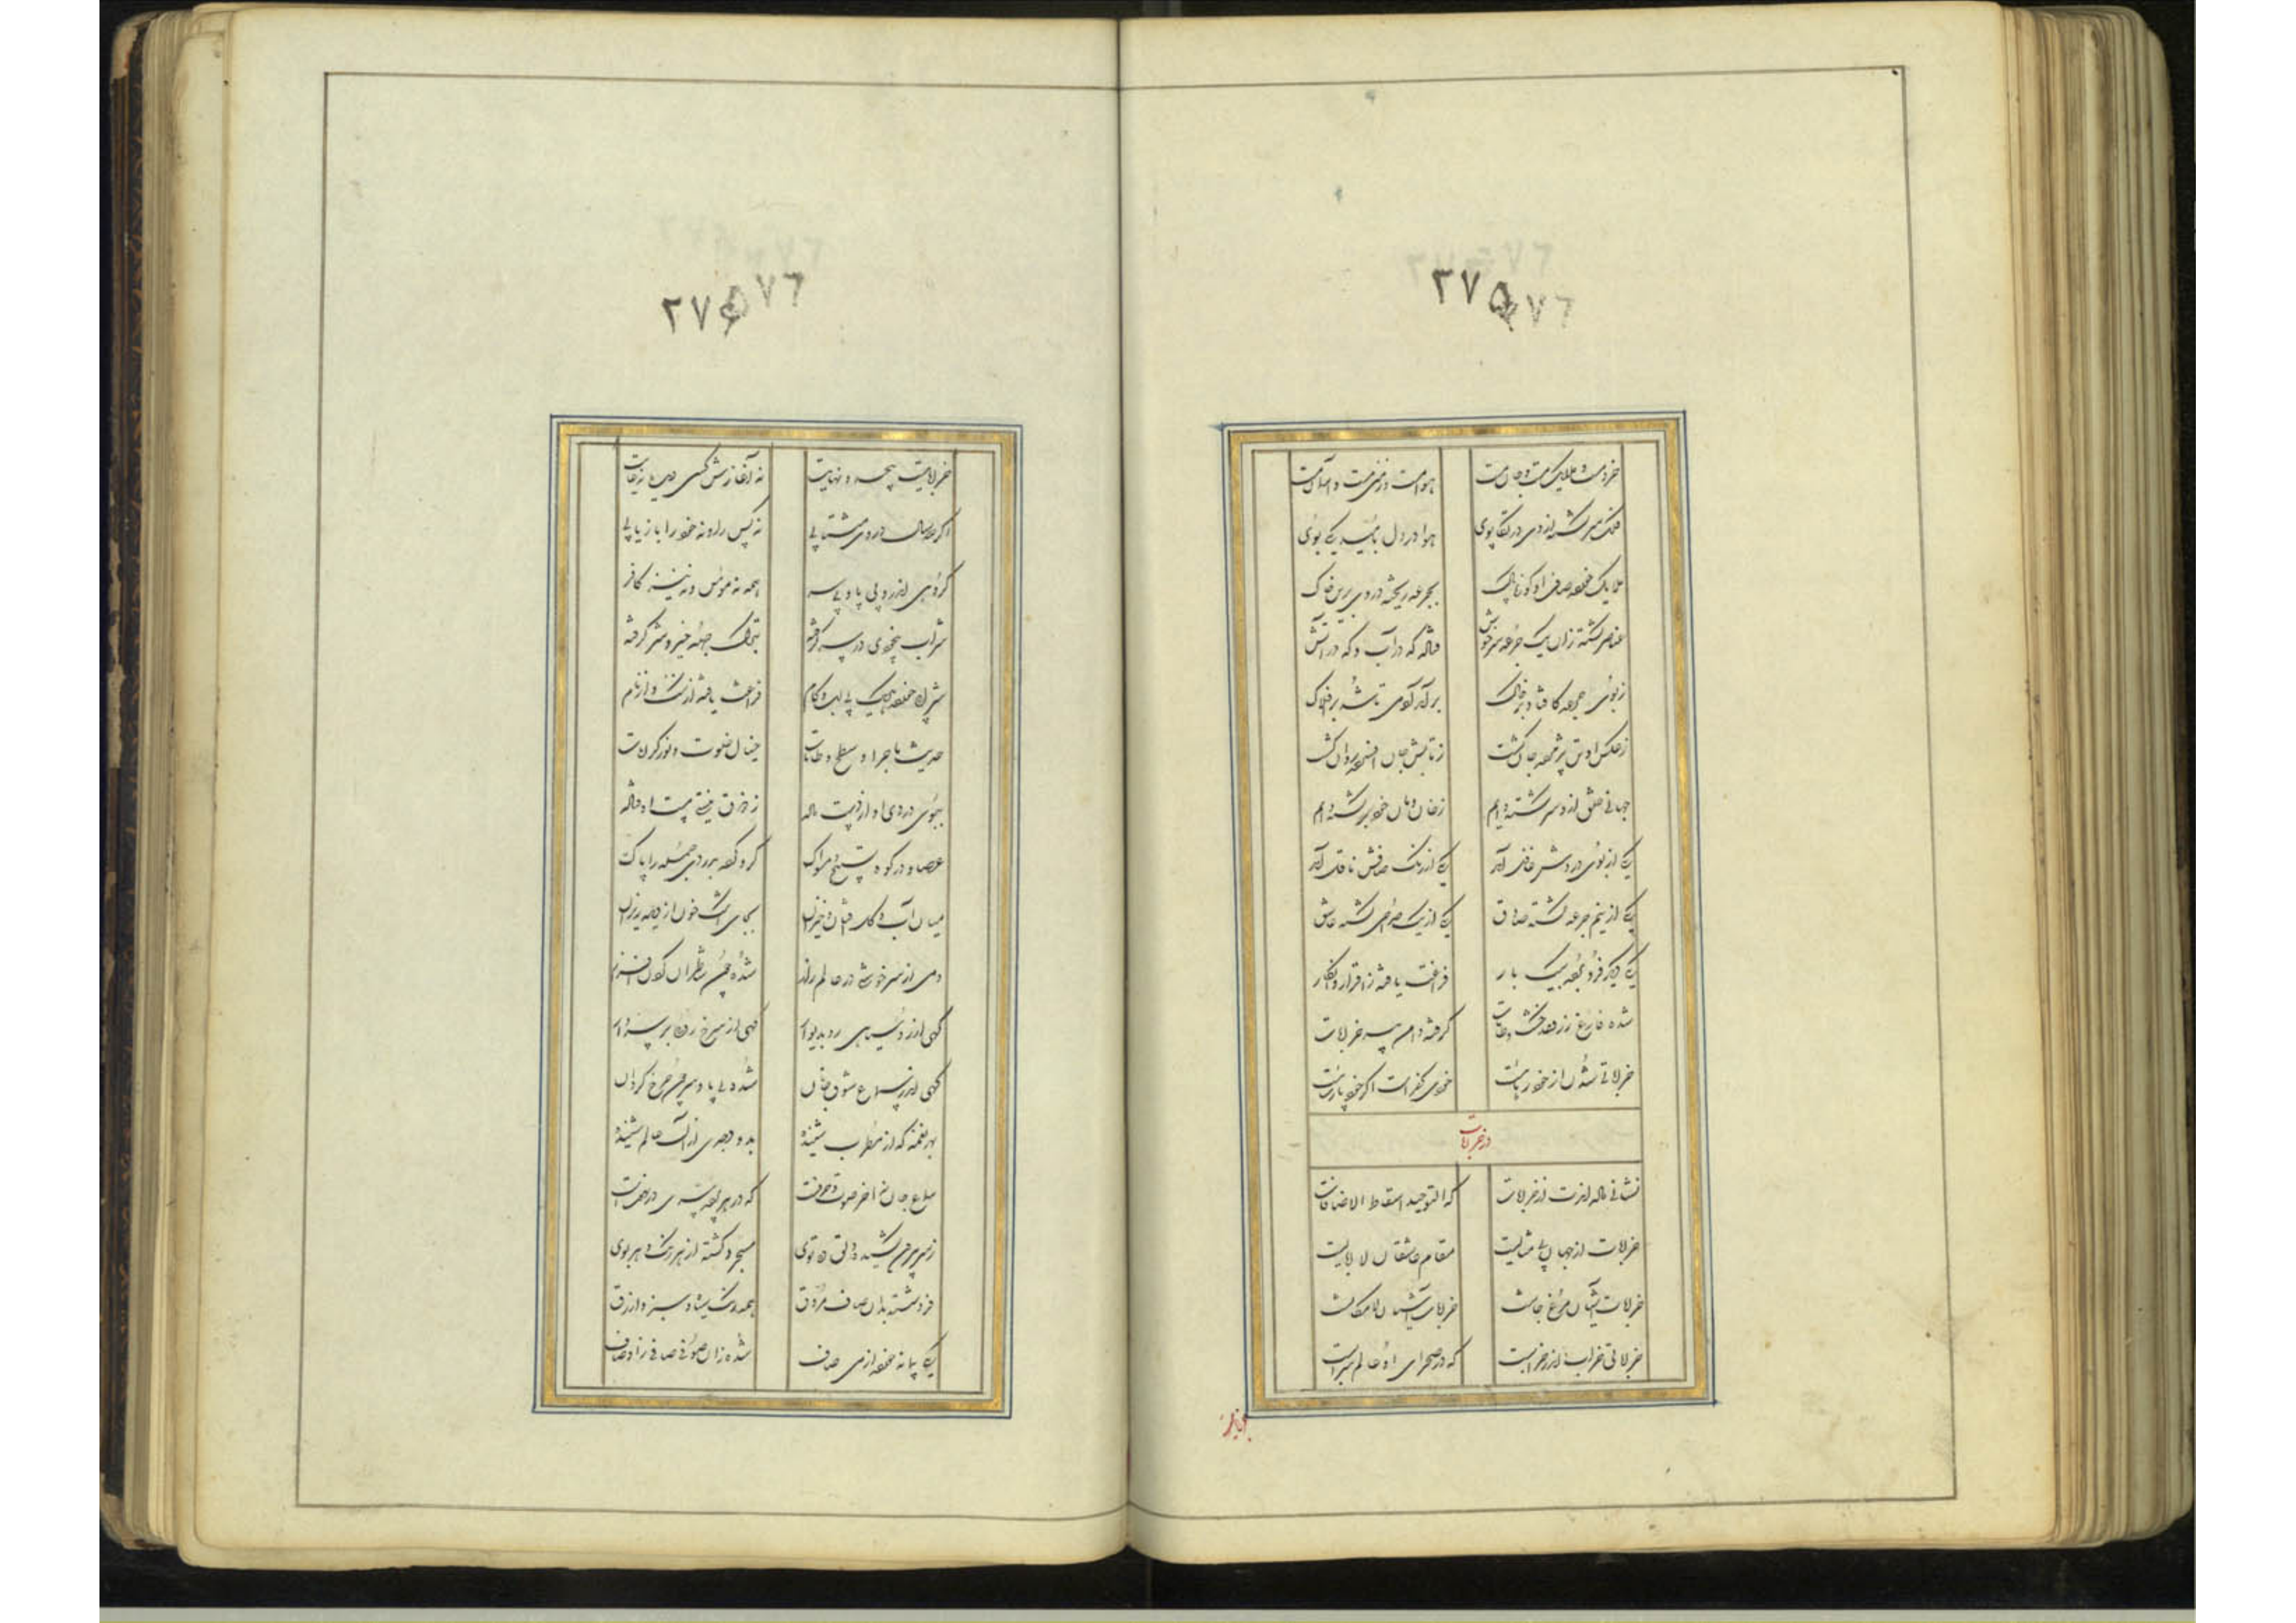 ۲۷۵
۲۷۶
خرد مست و ملایک مست و جان مست هوا مست و زمین مست و آسمان مست
فلک سرگشته از وی در تکاپوی هوا در دل بامید یکی بوی
ملایک خورده صاف از کوزه پاک بجرعه ریخته دردی برین خاک
عناصر گشته زان یک جرعه سرخوش فتاده که در آب و که در آتش
ز بوی جرعه کافتاد بر خاک برآمد آدمی تا شد بر افلاک
ز عکس او تن پژمرده جان گشت ز تابش جان افسرده روان گشت
جهانی خلق ازو سرگشته دایم ز خان و مان خود برگشته دایم
یکی از بوی دردش عاقل آمد یکی از رنگ صافش ناقل آمد
یکی از نیم جرعه گشته صادق یکی از یک صراحی گشته عاشق
یکی دیگر فرو برده بیک بار فراغت یافته ز اقرار و انکار
شده فارغ ز زهد خشک و طامات گرفته دامن پیر خرابات
خراباتی شدن از خود رهائیست خودی کفر است اگر خود پارسائیست
در خرابات
نشانی داده اندت از خرابات که التوحید اسقاط الاضافات
خرابات از جهان بی مثالیست مقام عاشقان لاابالیست
خرابات آشیان مرغ جانست خرابات آستان لامکانست
خراباتی خراب اندر خرابست که در صحرای او عالم سرابست
۲۷۶
۵۷۶
خراباتیست بیحد و نهایت نه آغازش کسی دیده نه غایت
اگر صد سال در وی میشتابی نه کس را و نه خود را باز یابی
گروهی اندرو بی پا و بی سر همه نه مؤمن و نه نیز کافر
شراب بیخودی در سر گرفته بترک جمله خیر و شر گرفته
شرابی خورده هر یک بی لب و کام فراغت یافته از ننگ و از نام
حدیث ماجرا و شطح و طامات خیال خلوت و نور کرامات
ببوی دردی او از دست داده ز ذوق نیستی مست اوفتاده
عصا و رکوه و تسبیح و مسواک گرو کرده بدردی جمله را پاک
میان آب و گل افتان و خیزان بجای اشک خون از دیده ریزان
دمی از سرخوشی در عالم راز شده چون شاطران گردن افراز
گهی از روسیاهی رو بدیوار گهی از سرخ روئی بر سر دار
گهی اندر سماع شوق جانان شده بی پا و سر چون چرخ گردان
بهر نغمه که از مطرب شنیده بدو وجدی از آن عالم رسیده
سماع جان نه آخر صوت و حرفست که در هر پرده سری شگرفست
ز سر بیرون کشیده دلق ده توی مجرد گشته از هر رنگ و هر بوی
فرو شسته بدان صاف مروق همه رنگ سیاه و سبز و ازرق
یکی پیمانه خورده از می صاف شده زان صوفی صافی ز اوصاف